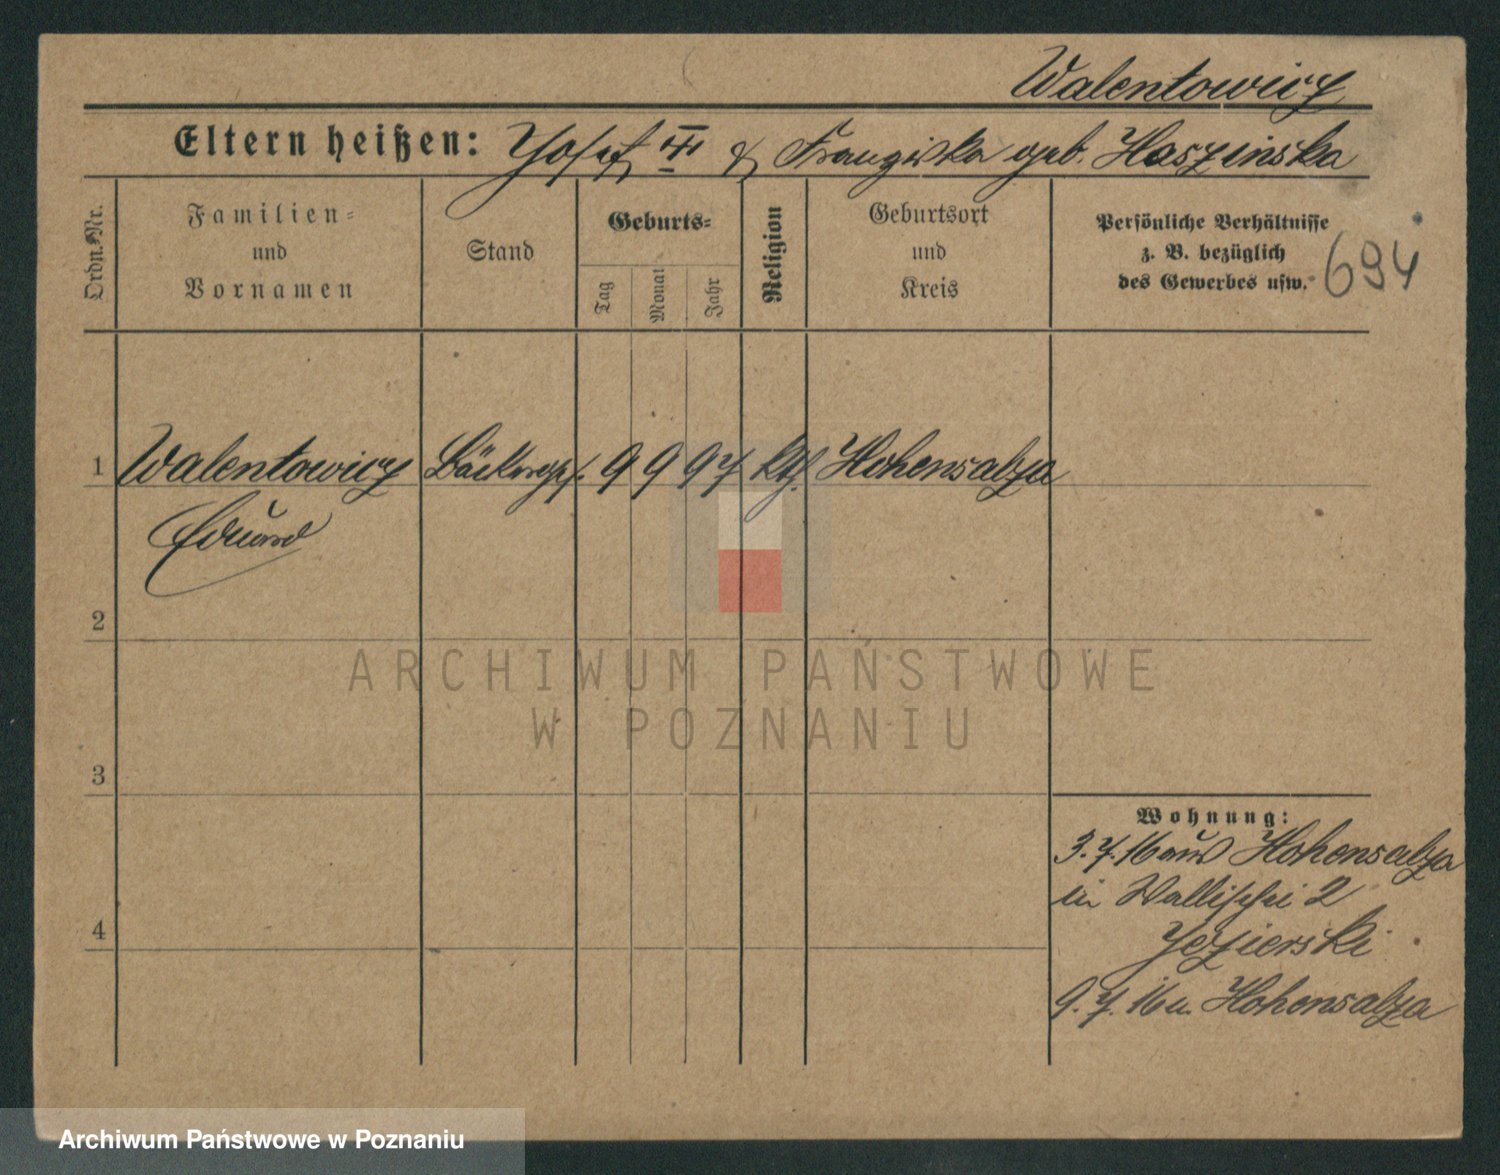 Walentowicz
Eltern heißen: Josef & Franziska geb. Haszinska
Ordn.-Nr.
Familien-
und
Vornamen
Stand
Geburts-
Tag
Monat
Jahr
Religion
Geburtsort
und
Kreis
Persönliche Verhältnisse
z. B. bezüglich
des Gewerbes usw.
694
1 Walentowicz Bäckergeh. 9 9 97 kth. Hohensalza
Eduard
2
3
4
Wohnung:
3.7.16 aus Hohensalza
in Wallischei 2
Jezierski
9.7.16 n. Hohensalza
ARCHIWUM PAŃSTWOWE
W POZNANIU
Archiwum Państwowe w Poznaniu